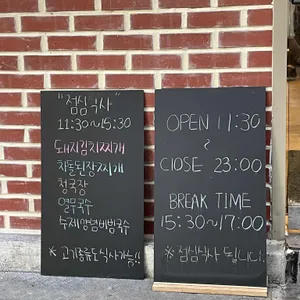 "점심식사"
11:30~15:30
돼지김치찌개
차돌된장찌개
청국장
열무국수
수제양념비빔국수
※ 고기종류도 식사가능!!
OPEN 11:30
~
CLOSE 23:00
BREAK TIME
15:30~17:00
※ 점심식사 됩니다.